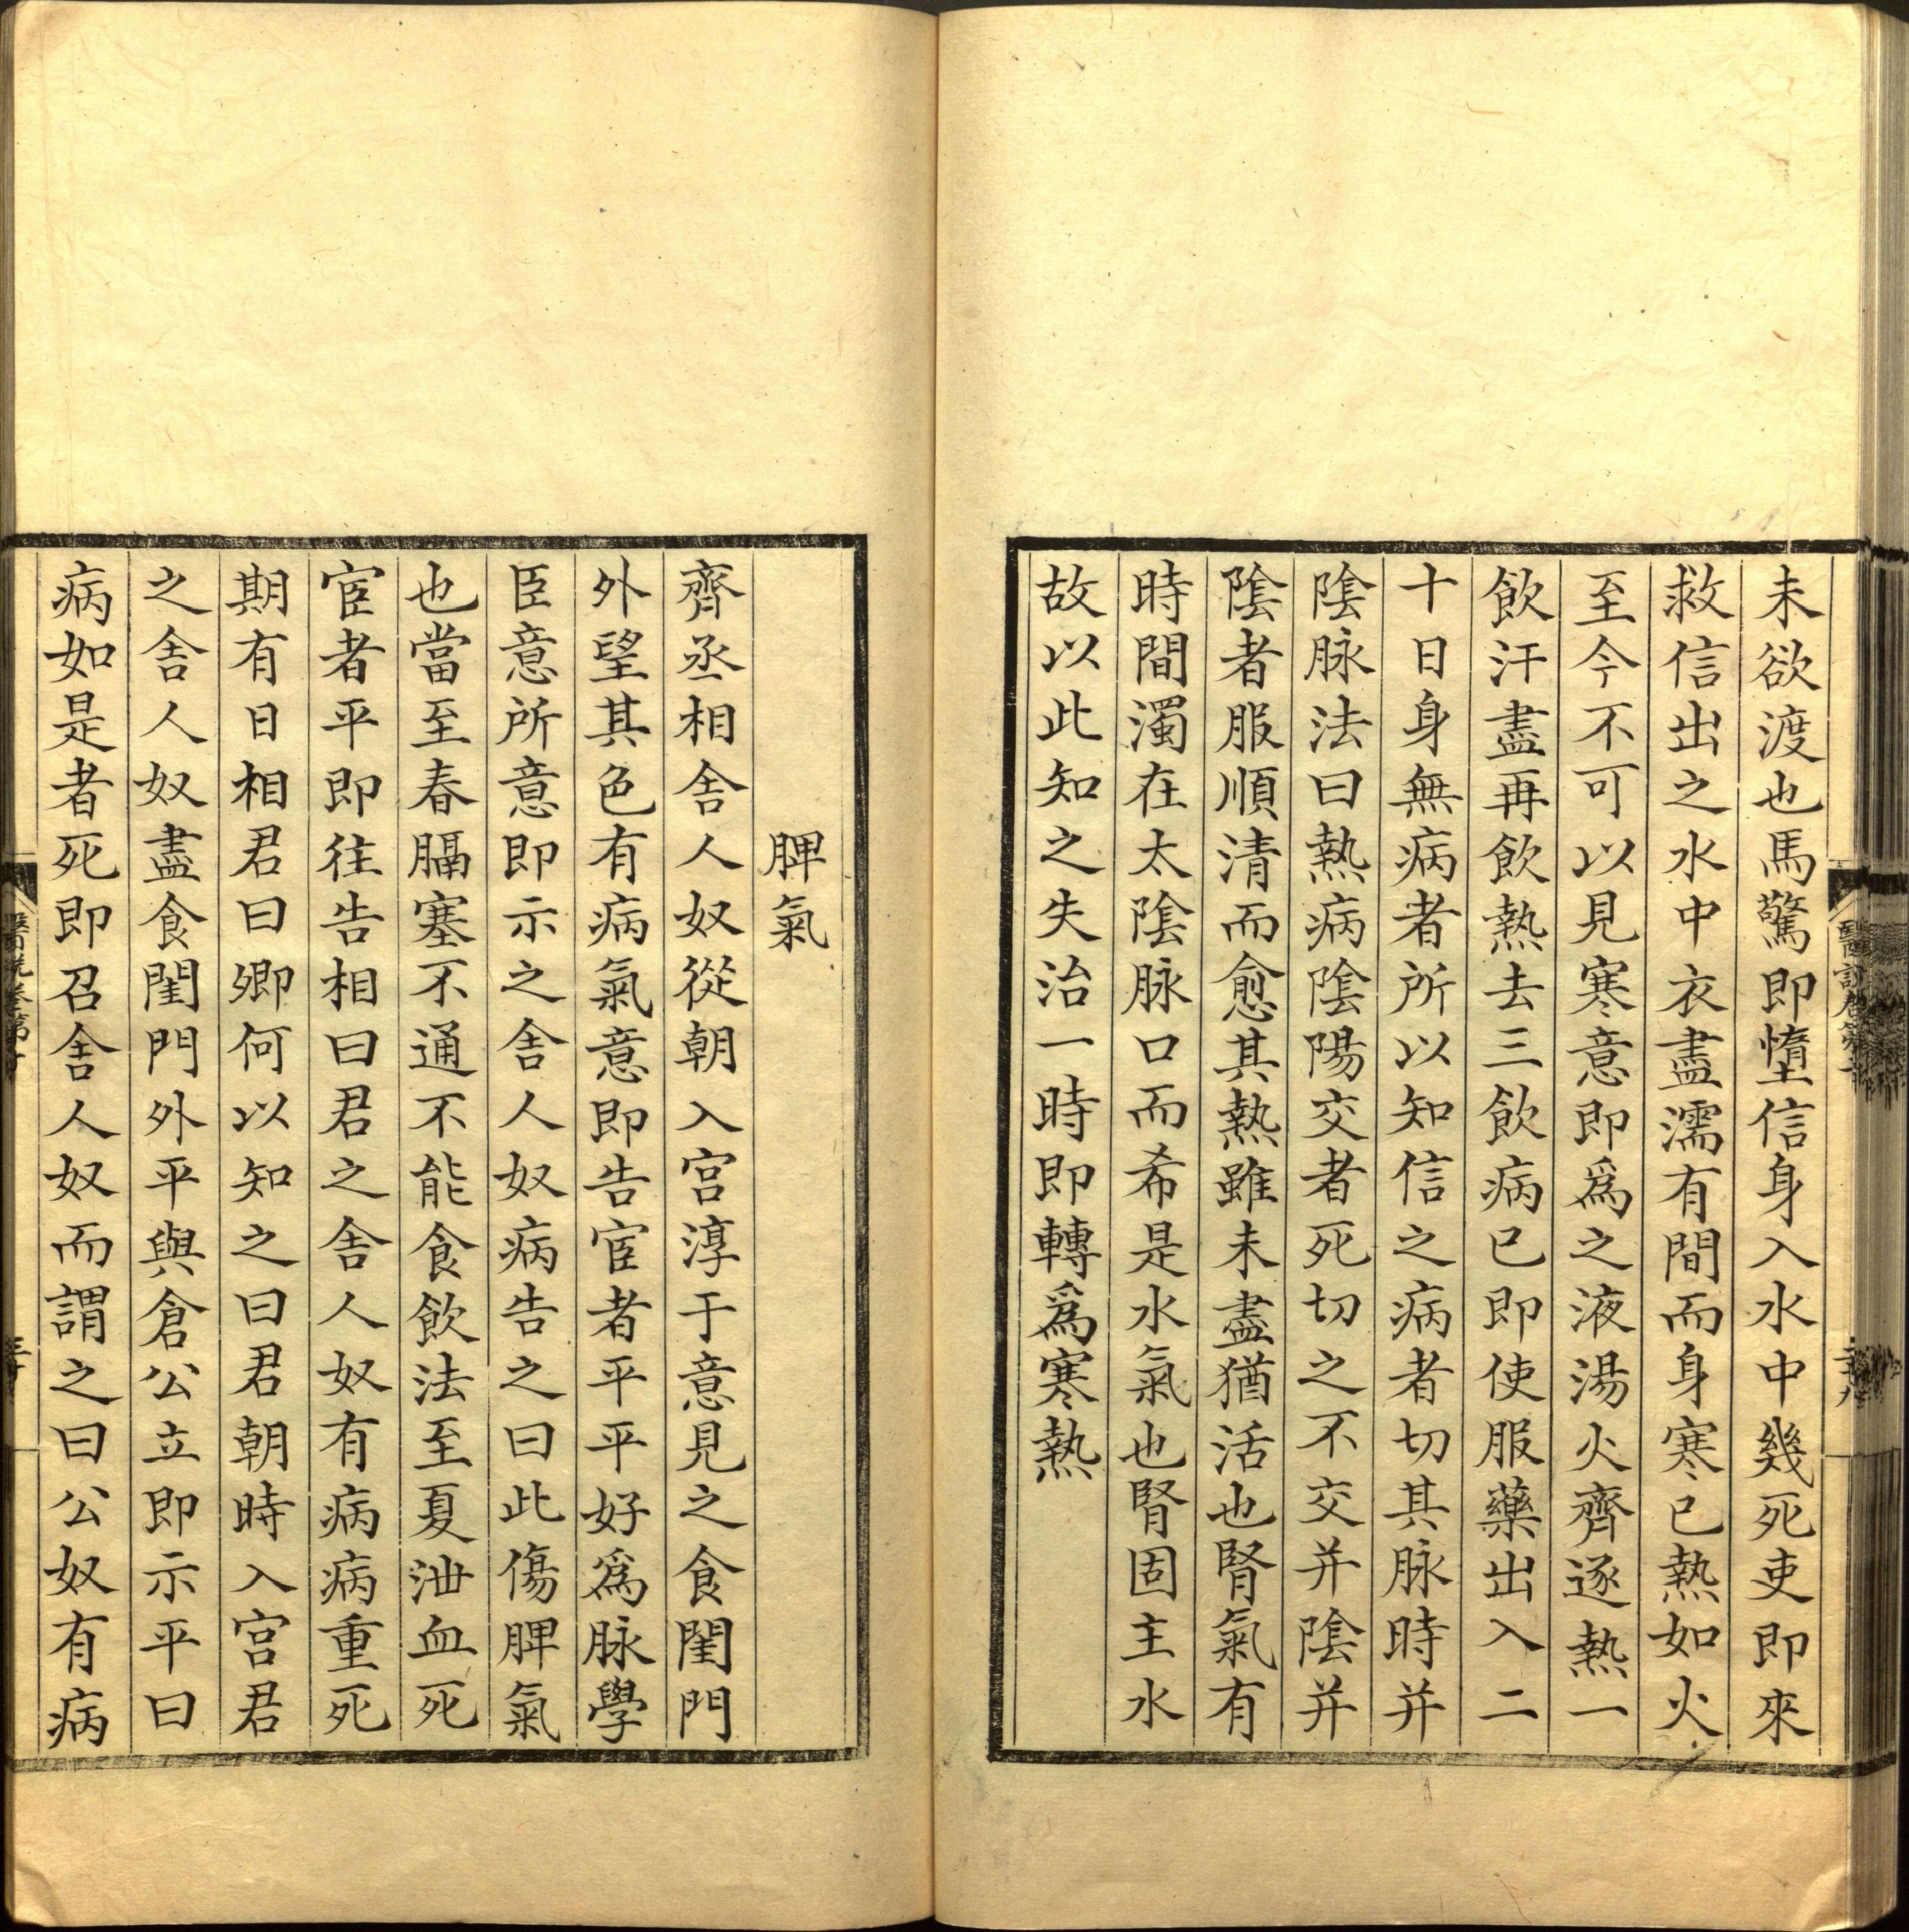 未欲渡也馬驚即墮信身入水中幾死吏即來
救信出之水中衣盡濡有間而身寒已熱如火
至今不可以見寒意即爲之液湯火齊逐熱一
飲汗盡再飲熱去三飲病已即使服藥出入二
十日身無病者所以知信之病者切其脉時并
陰脉法曰熱病陰陽交者死切之不交并陰并
陰者服順清而愈其熱雖未盡猶活也腎氣有
時間濁在太陰脉口而希是水氣也腎固主水
故以此知之失治一時即轉爲寒熱
脾氣
齊丞相舍人奴從朝入宮淳于意見之食閨門
外望其色有病氣意即告宦者平平好爲脉學
臣意所意即示之舍人奴病告之曰此傷脾氣
也當至春膈塞不通不能食飲法至夏泄血死
宦者平即往告相曰君之舍人奴有病病重死
期有日相君曰卿何以知之曰君朝時入宮君
之舍人奴盡食閨門外平與倉公立即示平曰
病如是者死即召舍人奴而謂之曰公奴有病
醫說卷第十